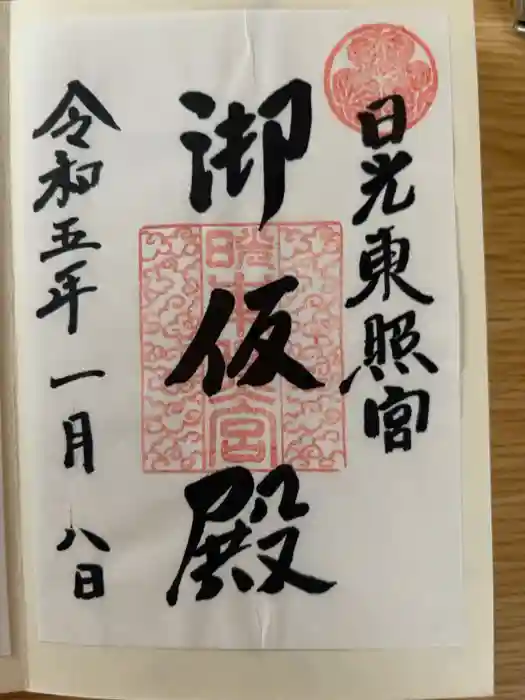 日光東照宮
御仮殿
令和五年一月八日